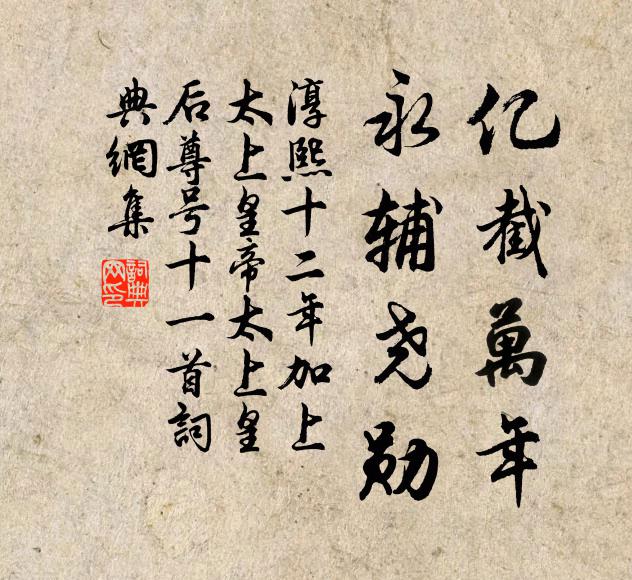 亿截萬年
永辅尧勋
淳熙十二年加上
太上皇帝太上皇
后尊号十一首詞
典網集
詞典
网印